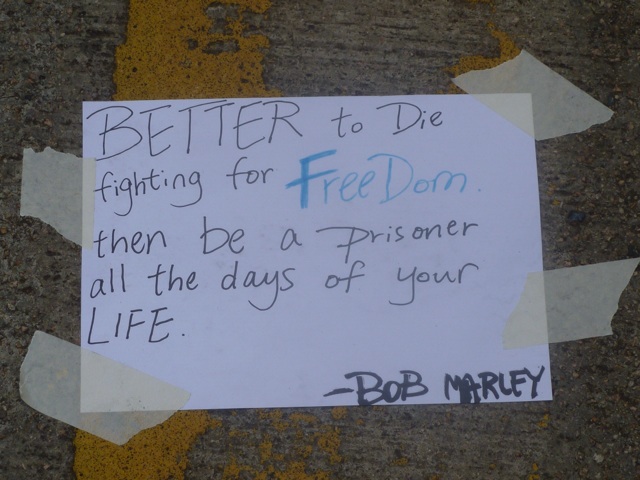 BETTER to Die
fighting for FreeDom.
then be a prisoner
all the days of your
LIFE.
-BOB MARLEY